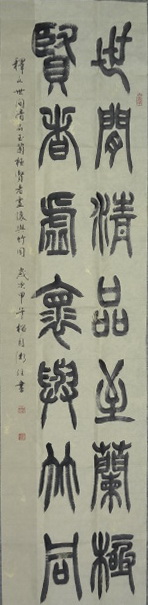 世間清品至蘭極
賢者虛懷與竹同
釋文世間清品至蘭極賢者虛懷與竹同 歲次甲午
書